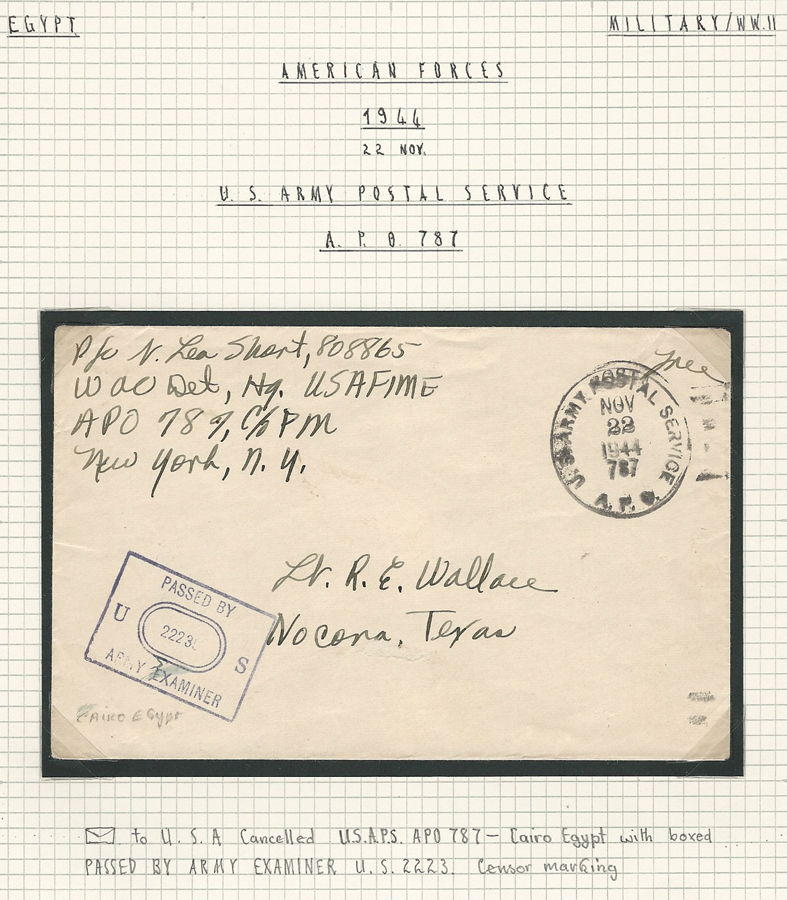 EGYPT
MILITARY/WW.II
AMERICAN FORCES
1944
22 NOV.
U. S. ARMY POSTAL SERVICE
A. P. O. 787
Pfc N. Lea Short, 808865
WAC Det, Hq. USAFIME
APO 787, C/o PM
New York, N. Y.
Free
U.S. ARMY POSTAL SERVICE
NOV
22
1944
787
A. P. O.
Lt. R. E. Wallace
Nocona, Texas
PASSED BY
U 2223 S
ARMY EXAMINER
Cairo Egypt
to U. S. A Cancelled U.S.A.P.S. APO 787 — Cairo Egypt with boxed
PASSED BY ARMY EXAMINER U. S. 2223. Censor marking